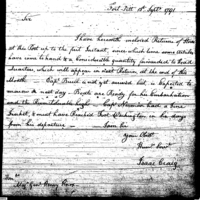 Fort Pitt 11th Septr. 1791
Sir
I have herewith enclosed Returns of Stores
at this Post up to the first Instant, since which time some Articles
have come to hand & a considerable quantity forwarded to Head
Quarters, which will appear in next Return at the end of this
Month. Capt. is not yet arrived but is expected to
morrow or next day. Boats are Ready for his Embarkation
and the River tolerable high. Capt. had a fine
Freshet, & must have Reached Fort Washington in Six days
from his departure. I am Sir
Your Obedt.
Humt. Servt.
Isaac Craig
Honble
Majr. Genl. Henry Knox